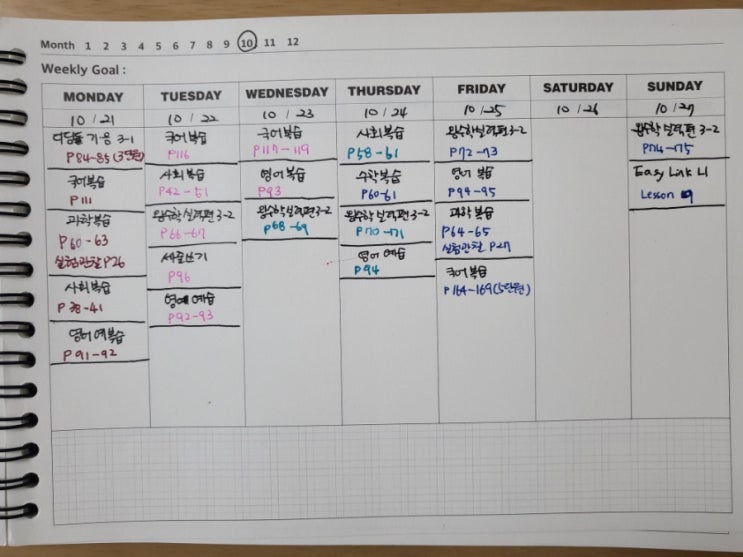 Month 1 2 3 4 5 6 7 8 9 10 11 12
Weekly Goal :
MONDAY TUESDAY WEDNESDAY THURSDAY FRIDAY SATURDAY SUNDAY
10 / 21 10 / 22 10 / 23 10 / 24 10 / 25 10 / 26 10 / 27
디딤돌 기응 3-1
P84-85 (3단원)
국어복습
P111
과학복습
P60-63
실험관찰 P26
사회복습
P38-41
영어 예복습
P91-92
국어복습
P116
사회복습
P42-51
왕수학실력편 3-2
P66-67
서술쓰기
P96
영어 예습
P92-93
국어복습
P117-119
영어복습
P93
왕수학실력편 3-2
P68-69
사회복습
P58-61
수학복습
P60-61
왕수학실력편 3-2
P70-71
영어 예습
P94
왕수학실력편 3-2
P72-73
영어 복습
P94-95
과학 복습
P64-65
실험관찰 P27
국어 복습
P164-169 (5단원)
왕수학 실력편 3-2
P74-75
Easy Link 4
Lesson 9